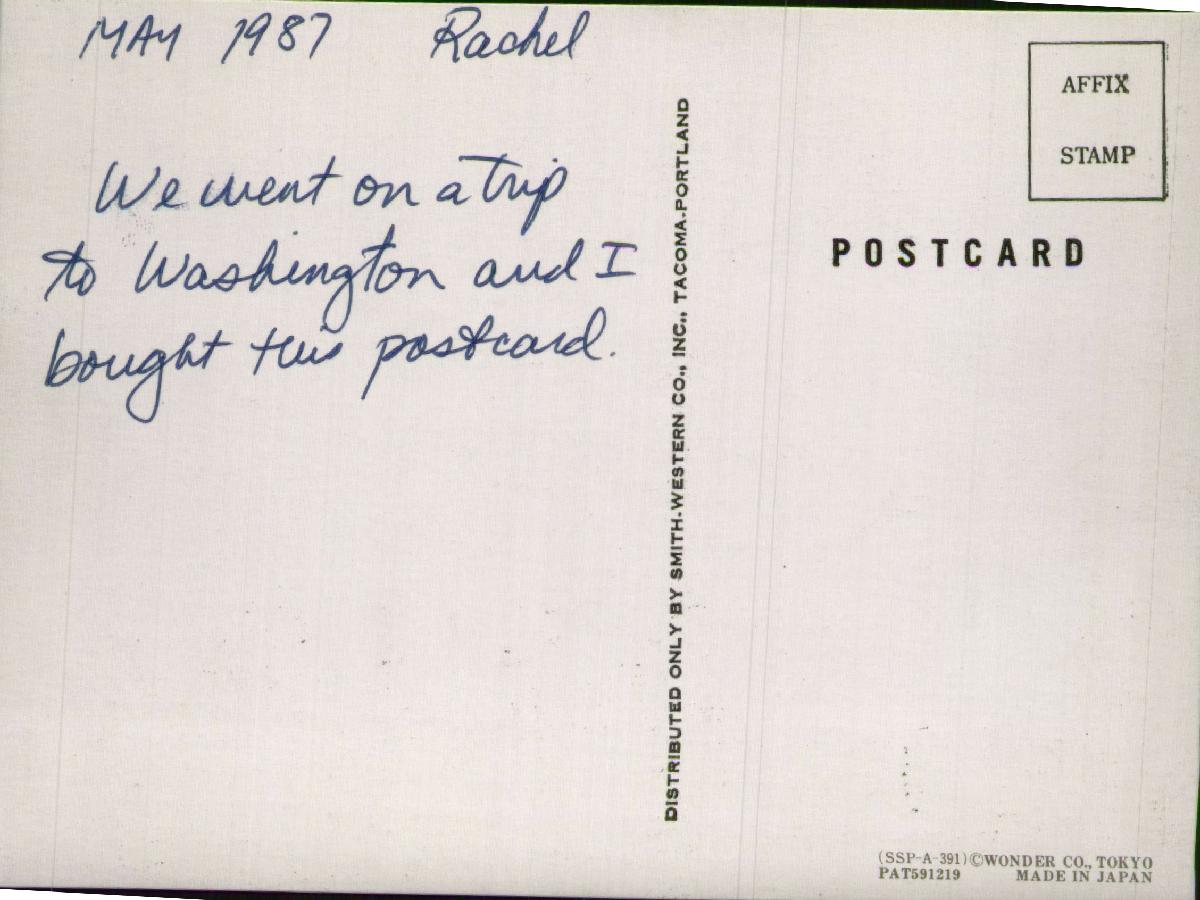 MAY 1987 Rachel
We went on a trip
to Washington and I
bought this postcard.
DISTRIBUTED ONLY BY SMITH-WESTERN CO., INC., TACOMA-PORTLAND
AFFIX
STAMP
POSTCARD
(SSP-A-391)©WONDER CO., TOKYO
PAT591219 MADE IN JAPAN